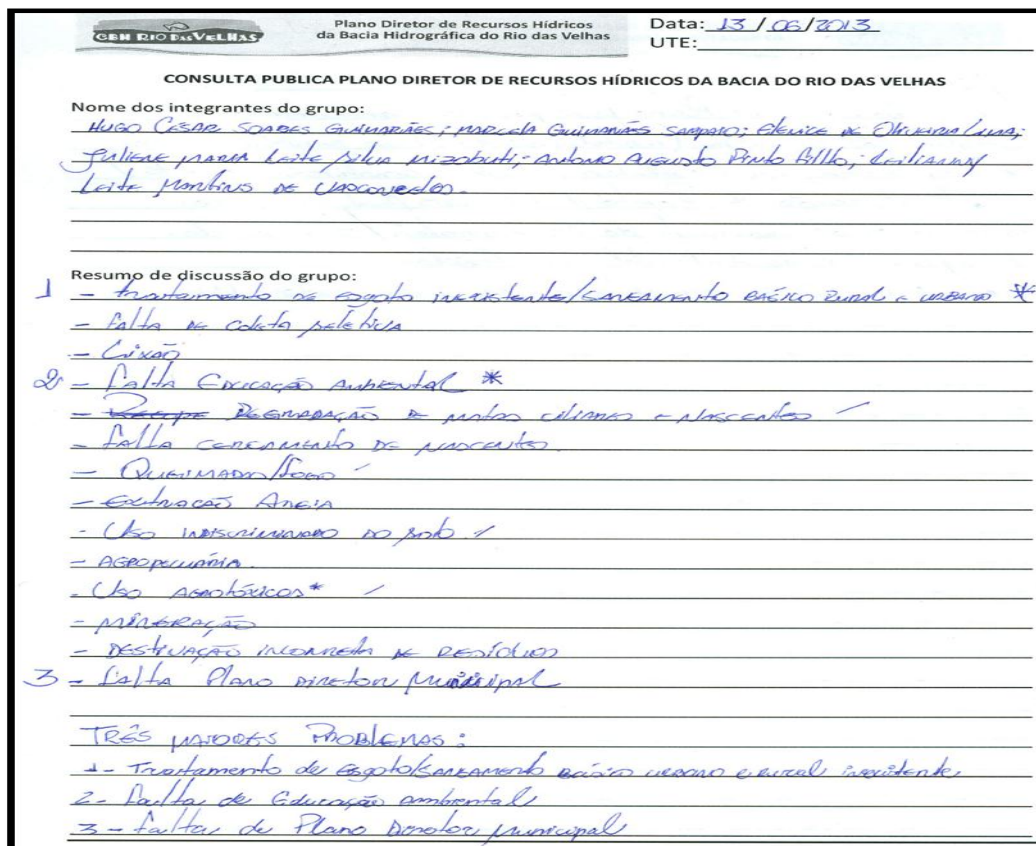 CBH RIO DAS VELHAS
Plano Diretor de Recursos Hídricos
da Bacia Hidrográfica do Rio das Velhas
Data: 13/06/2013
UTE:
CONSULTA PUBLICA PLANO DIRETOR DE RECURSOS HÍDRICOS DA BACIA DO RIO DAS VELHAS
Nome dos integrantes do grupo:
HUGO CESAR SOARES GUIMARÃES; MARCELA GUIMARÃES SAMPAIO; Elenice de Oliveira Lima;
Juliene MARIA Leite Silva Mizobuti; Antonio Augusto Pinto Filho; Leilianny
Leite Martins de Vasconcelos.
Resumo de discussão do grupo:
1 - tratamento de esgoto inexistente/SANEAMENTO BÁSICO RURAL e URBANO *
- falta de coleta seletiva
- Lixão
2 - Falta Educação Ambiental *
- DEGRADAÇÃO DE matas ciliares e Nascentes
- falta cercamento de nascentes.
- Queimadas/fogo
- Extração Areia
- Uso indiscriminado do solo
- AGROPECUÁRIA.
- Uso Agrotóxicos *
- MINERAÇÃO
- DESTINAÇÃO incorreta de Resíduos
3 - Falta Plano Diretor Municipal
TRÊS MAIORES PROBLEMAS:
1- Tratamento de Esgoto/SANEAMENTO básico urbano e rural inexistente
2- Falta de Educação ambiental
3- falta de Plano Diretor Municipal